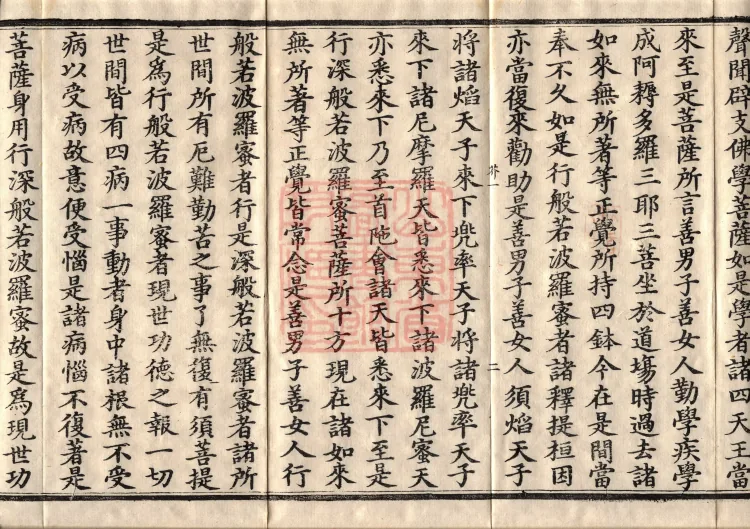 聲聞辟支佛學菩薩如是學者諸四天王當
來至是菩薩所言善男子善女人勤學疾學
成阿耨多羅三耶三菩坐於道場時過去諸
如來無所著等正覺所持四鉢今在是間當
奉不久如是行般若波羅蜜者諸釋提桓因
亦當復來勸助是善男子善女人須焰天子
二
將諸焰天子來下兜率天子將諸兜率天子
來下諸尼摩羅天皆悉來下諸波羅尼蜜天
亦悉來下乃至首陁會諸天皆悉來下至是
行深般若波羅蜜菩薩所十方現在諸如來
無所著等正覺皆常念是善男子善女人行
般若波羅蜜者行是深般若波羅蜜者諸所
世間所有厄難勤苦之事了無復有須菩提
是爲行般若波羅蜜者現世功德之報一切
世間皆有四病一事動者身中諸根無不受
病以受病故意便受惱是諸病惱不復著是
菩薩身用行深般若波羅蜜故是爲現世功